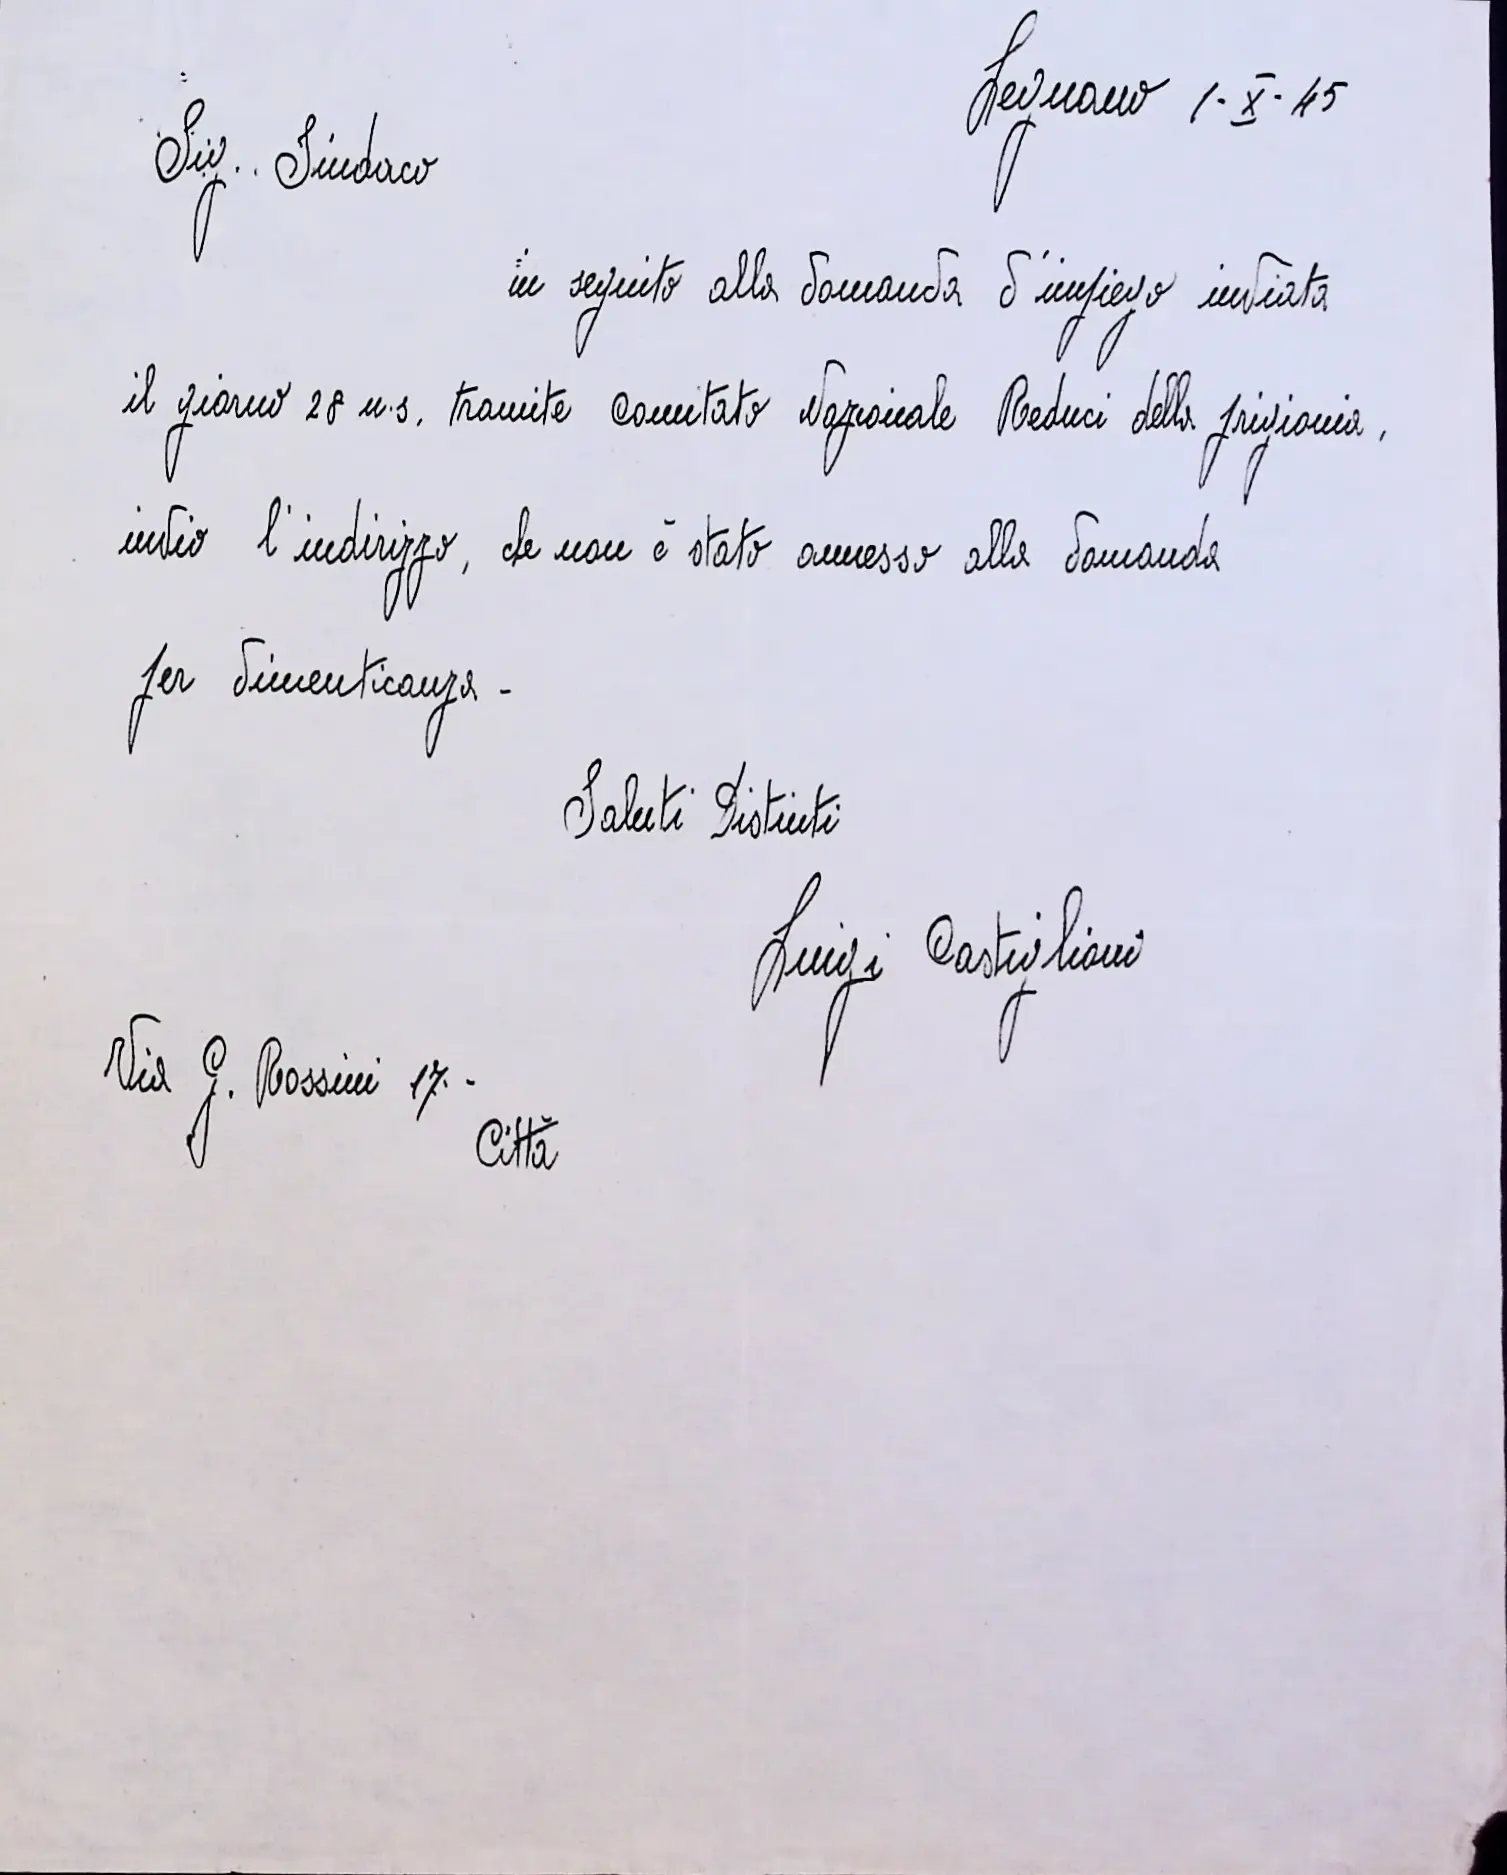 Legnano 1-X-45
Sig.. Sindaco
in seguito alla domanda d'impiego inviata
il giorno 28 u.s. tramite Comitato Nazionale Reduci della prigionia,
invio l'indirizzo, che non è stato annesso alla domanda
per dimenticanza -
Saluti Distinti
Luigi Castiglioni
Via G. Rossini 17. -
Città